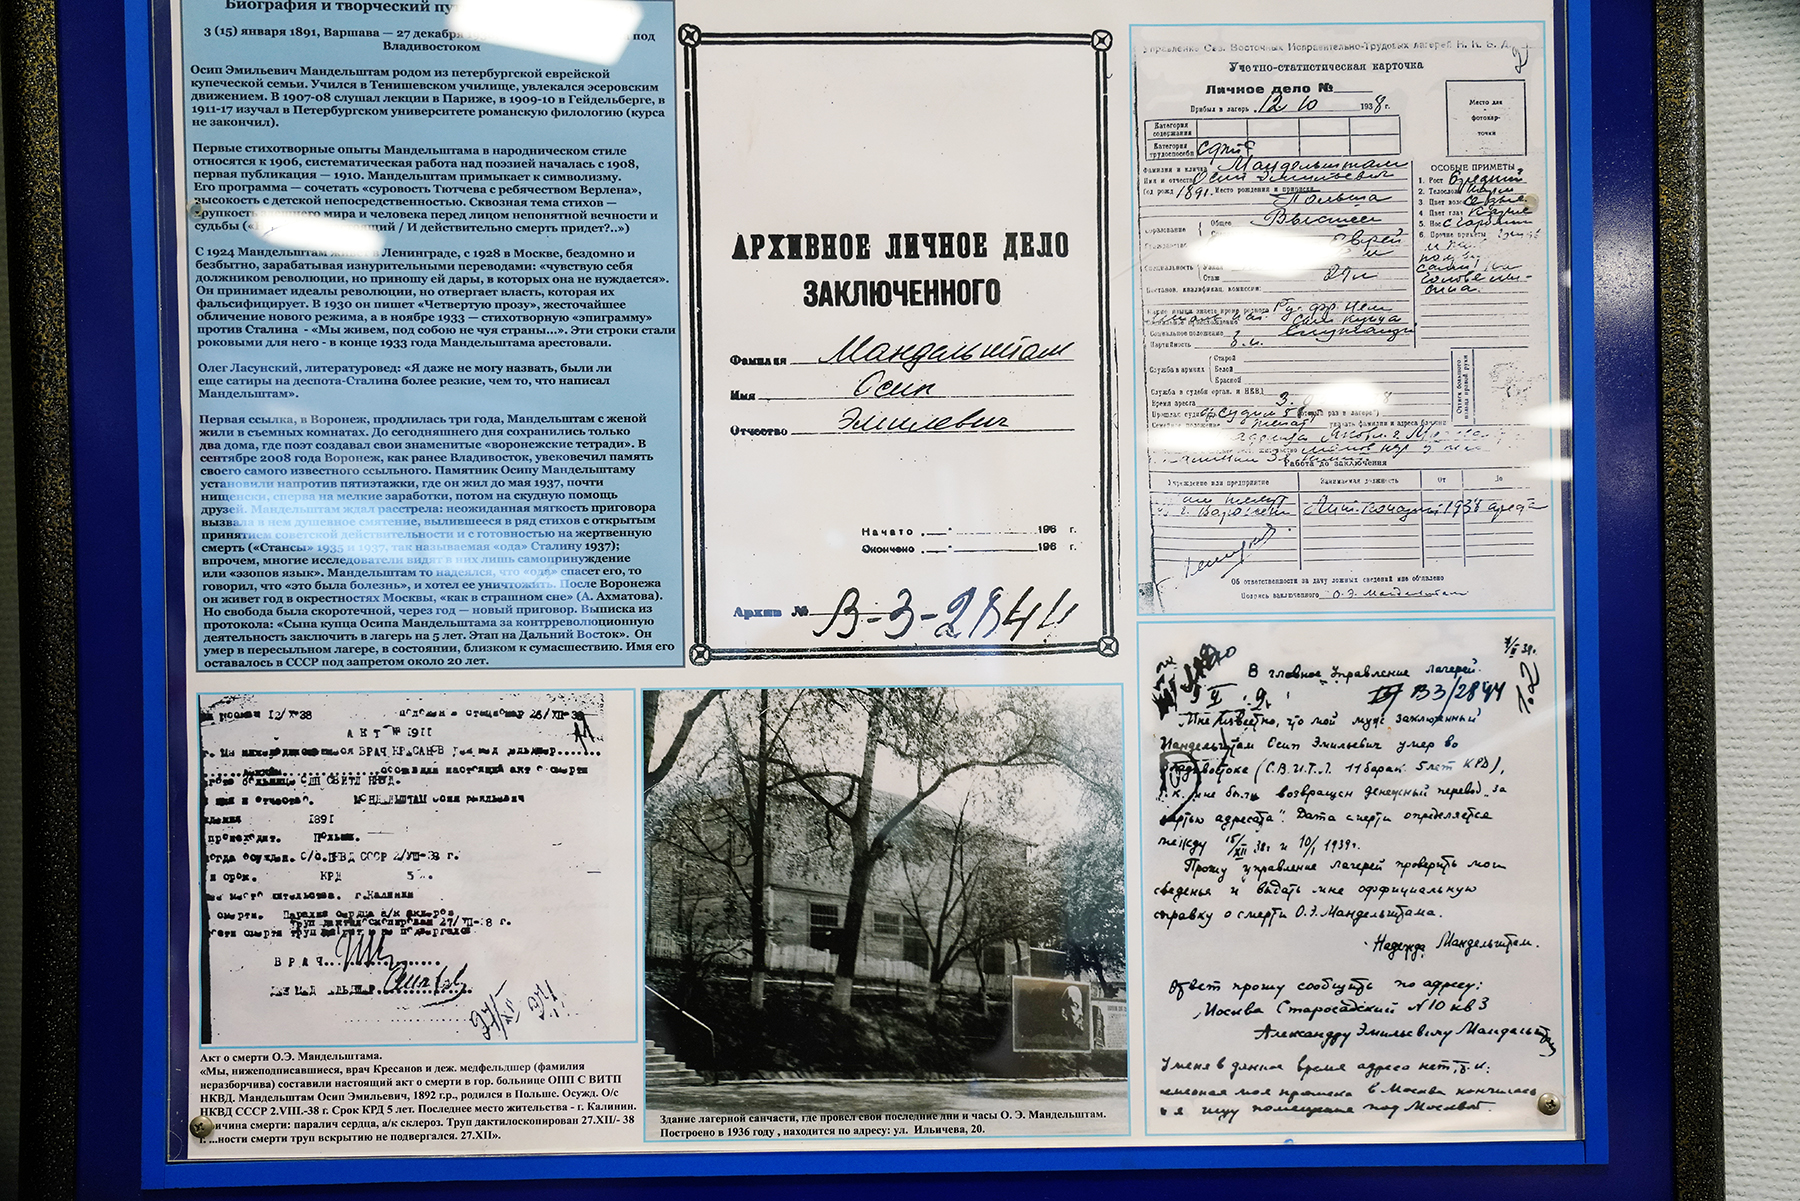 Биография и творческий пу
3 (15) января 1891, Варшава — 27 декабря под
Владивостоком
Осип Эмильевич Мандельштам родом из петербургской еврейской
купеческой семьи. Учился в Тенишевском училище, увлекался эсеровским
движением. В 1907-08 слушал лекции в Париже, в 1909-10 в Гейдельберге, в
1911-17 изучал в Петербургском университете романскую филологию (курса
не закончил).
Первые стихотворные опыты Мандельштама в народническом стиле
относятся к 1906, систематическая работа над поэзией началась с 1908,
первая публикация — 1910. Мандельштам примыкает к символизму.
Его программа — сочетать «суровость Тютчева с ребячеством Верлена»,
высокость с детской непосредственностью. Сквозная тема стихов —
хрупкость мира и человека перед лицом непонятной вечности и
судьбы / И действительно смерть придет?..»)
С 1924 Мандельштам в Ленинграде, с 1928 в Москве, бездомно и
безбытно, зарабатывая изнурительными переводами: «чувствую себя
должником революции, но приношу ей дары, в которых она не нуждается».
Он принимает идеалы революции, но отвергает власть, которая их
фальсифицирует. В 1930 он пишет «Четвертую прозу», жесточайшее
обличение нового режима, а в ноябре 1933 — стихотворную «эпиграмму»
против Сталина - «Мы живем, под собою не чуя страны...». Эти строки стали
роковыми для него - в конце 1933 года Мандельштама арестовали.
Олег Ласунский, литературовед: «Я даже не могу назвать, были ли
еще сатиры на деспота-Сталина более резкие, чем то, что написал
Мандельштам».
Первая ссылка, в Воронеж, продлилась три года, Мандельштам с женой
жили в съемных комнатах. До сегодняшнего дня сохранились только
два дома, где поэт создавал свои знаменитые «воронежские тетради». В
сентябре 2008 года Воронеж, как ранее Владивосток, увековечил память
своего самого известного ссыльного. Памятник Осипу Мандельштаму
установили напротив пятиэтажки, где он жил до мая 1937, почти
нищенски, сперва на мелкие заработки, потом на скудную помощь
друзей. Мандельштам ждал расстрела: неожиданная мягкость приговора
вызвала в нем душевное смятение, вылившееся в ряд стихов с открытым
принятием советской действительности и с готовностью на жертвенную
смерть («Стансы» 1935 и 1937, так называемая «ода» Сталину 1937);
впрочем, многие исследователи видят в них лишь самопринуждение
или «эзопов язык». Мандельштам то надеялся, что «ода» спасет его, то
говорил, что «это была болезнь», и хотел ее уничтожить. После Воронежа
он живет год в окрестностях Москвы, «как в страшном сне» (А. Ахматова).
Но свобода была скоротечной, через год — новый приговор. Выписка из
протокола: «Сына купца Осипа Мандельштама за контрреволюционную
деятельность заключить в лагерь на 5 лет. Этап на Дальний Восток». Он
умер в пересыльном лагере, в состоянии, близком к сумасшествию. Имя его
оставалось в СССР под запретом около 20 лет.
АРХИВНОЕ ЛИЧНОЕ ДЕЛО
ЗАКЛЮЧЕННОГО
Фамилия Мандельштам
Имя Осип
Отчество Эмилевич
Начато 196 г.
Окончено 196 г.
Архив № В-3-2844
Управление Сев. Восточных Исправительно-Трудовых лагерей Н. К. В. Д.
Учетно-статистическая карточка
Личное дело №
Прибыл в лагерь 12 10 1938 г.
Место для
фотокар-
точки
Категория
содержания
Категория
трудоспособн.
Фамилия и кличка Мандельштам
Имя и отчество Осип Эмильевич
Год рожд. 1891 Место рождения и прописки
Польша
Общее Высшее
еврей
Специальность
Стаж
Партийность б.п.
Служба в армиях
Старой
Белой
Красной
Служба в судебн орган. и НКВД
Время ареста
ОСОБЫЕ ПРИМЕТЫ
1. Рост Средний
2. Телосложение
3. Цвет волос
4. Цвет глаз Карие
5. Нос
6. Прочие приметы
Работа до заключения
Учреждение или предприятие Занимаемая должность От До
Об ответственности за дачу ложных сведений мне объявлено
Подпись заключенного О.Э. Мандельштам
12/X-38
АКТ № 1911
ВРАЧ КРЕСАНОВ
составили настоящий акт о смерти
1891
Польша.
НКВД СССР 2/VIII-38 г.
КРД 5
г. Калинин
ВРАЧ
Акт о смерти О.Э. Мандельштама.
«Мы, нижеподписавшиеся, врач Кресанов и деж. медфельдшер (фамилия
неразборчива) составили настоящий акт о смерти в гор. больнице ОПП С ВИТП
НКВД. Мандельштам Осип Эмильевич, 1892 г.р., родился в Польше. Осужд. О/с
НКВД СССР 2.VIII.-38 г. Срок КРД 5 лет. Последнее место жительства - г. Калинин.
ричина смерти: паралич сердца, а/к склероз. Труп дактилоскопирован 27.XII/- 38
г. ...ности смерти труп вскрытию не подвергался. 27.XII».
Здание лагерной санчасти, где провел свои последние дни и часы О. Э. Мандельштам.
Построено в 1936 году , находится по адресу: ул. Ильичева, 20.
В главное Управление лагерей.
В3/2844
Мне известно, что мой муж заключенный
Мандельштам Осип Эмильевич умер во
Владивостоке (С.В.И.Т.Л. 11 барак. 5 лет КРД),
т.к. мне был возвращен денежный перевод „за
смертью адресата". Дата смерти определяется
между 15/XII 38 г. и 10/I 1939 г.
Прошу управление лагерей проверить мои
сведенья и выдать мне официальную
справку о смерти О.Э. Мандельштама.
Надежда Мандельштам.
Ответ прошу сообщить по адресу:
Москва Старосадский N 10 кв 3
Александру Эмильевичу Мандельштам
У меня в данное время адреса нет, т. к.
моя прописка в Москве кончилась
и я ищу помещение под Москвой.